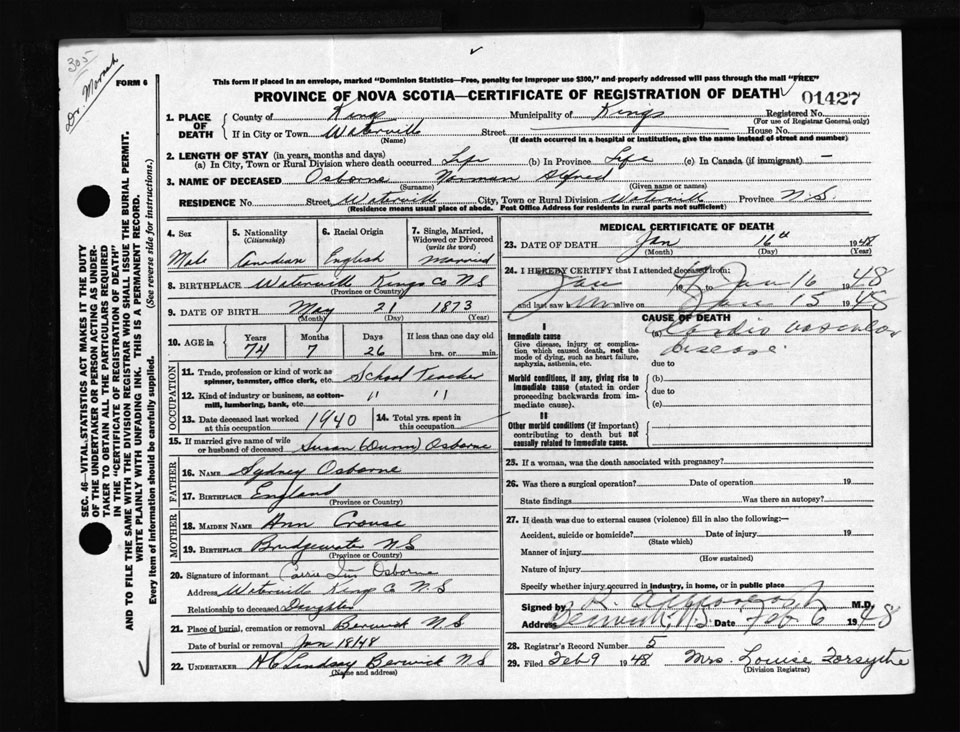 305
Dr. Morash
FORM 6
This form if placed in an envelope, marked "Dominion Statistics—Free, penalty for improper use $300," and properly addressed will pass through the mail "FREE"
PROVINCE OF NOVA SCOTIA—CERTIFICATE OF REGISTRATION OF DEATH
01427
1. PLACE OF DEATH County of Kings Municipality of Kings Registered No.
(For use of Registrar General only)
If in City or Town Waterville Street House No.
(Name) (If death occurred in a hospital or institution, give the name instead of street and number)
2. LENGTH OF STAY (in years, months and days)
(a) In City, Town or Rural Division where death occurred Life (b) In Province Life (c) In Canada (if immigrant) —
3. NAME OF DECEASED Osborne Norman Alfred
(Surname) (Given name or names)
RESIDENCE No. Street Waterville City, Town or Rural Division Waterville Province N.S.
(Residence means usual place of abode. Post Office Address for residents in rural parts not sufficient)
4. Sex 5. Nationality (Citizenship) 6. Racial Origin 7. Single, Married, Widowed or Divorced (write the word)
Male Canadian English Married
8. BIRTHPLACE Waterville Kings Co NS
(Province or Country)
9. DATE OF BIRTH May 21 1873
(Month) (Day) (Year)
10. AGE in Years Months Days If less than one day old
74 7 26 hrs. or min.
OCCUPATION
11. Trade, profession or kind of work as spinner, teamster, office clerk, etc. School Teacher
12. Kind of industry or business, as cotton-mill, lumbering, bank, etc. " "
13. Date deceased last worked at this occupation 1940 14. Total yrs. spent in this occupation
15. If married give name of wife or husband of deceased Susan (Dunn) Osborne
FATHER
16. NAME Sydney Osborne
17. BIRTHPLACE England
(Province or Country)
MOTHER
18. MAIDEN NAME Ann Crouse
19. BIRTHPLACE Bridgewater N.S
(Province or Country)
20. Signature of informant Carrie Osborne
Address Waterville Kings Co N.S
Relationship to deceased Daughter
21. Place of burial, cremation or removal Berwick N.S
Date of burial or removal Jan 18/48
22. UNDERTAKER H C Lindsay Berwick N S
(Name and address)
MEDICAL CERTIFICATE OF DEATH
23. DATE OF DEATH Jan 16th 1948
(Month) (Day) (Year)
24. I HEREBY CERTIFY that I attended deceased from:
Jan 19 to Jan 16 1948
and last saw him alive on Jan 15 1948
CAUSE OF DEATH
I
Immediate cause
Give disease, injury or complication which caused death, not the mode of dying, such as heart failure, asphyxia, asthenia, etc.
(a) Cardio vascular
disease
due to
Morbid conditions, if any, giving rise to immediate cause (stated in order proceeding backwards from immediate cause).
(b)
due to
(c)
II
Other morbid conditions (if important) contributing to death but not causally related to immediate cause.
25. If a woman, was the death associated with pregnancy?
26. Was there a surgical operation? Date of operation 19
State findings Was there an autopsy?
27. If death was due to external causes (violence) fill in also the following:—
Accident, suicide or homicide? Date of injury 19
(State which)
Manner of injury
(How sustained)
Nature of injury
Specify whether injury occurred in industry, in home, or in public place
Signed by M.D.
Address Berwick, N.S. Date Feb 6 1948
28. Registrar's Record Number 5
29. Filed Feb 9 1948 Mrs. Louise Forsythe
(Division Registrar)
SEC. 46—VITAL STATISTICS ACT MAKES IT THE DUTY
OF THE UNDERTAKER OR PERSON ACTING AS UNDER-
TAKER TO OBTAIN ALL THE PARTICULARS REQUIRED
IN THE "CERTIFICATE OF REGISTRATION OF DEATH"
AND TO FILE THE SAME WITH THE DIVISION REGISTRAR WHO SHALL ISSUE THE BURIAL PERMIT.
WRITE PLAINLY WITH UNFADING INK. THIS IS A PERMANENT RECORD.
Every item of information should be carefully supplied. (See reverse side for instructions.)